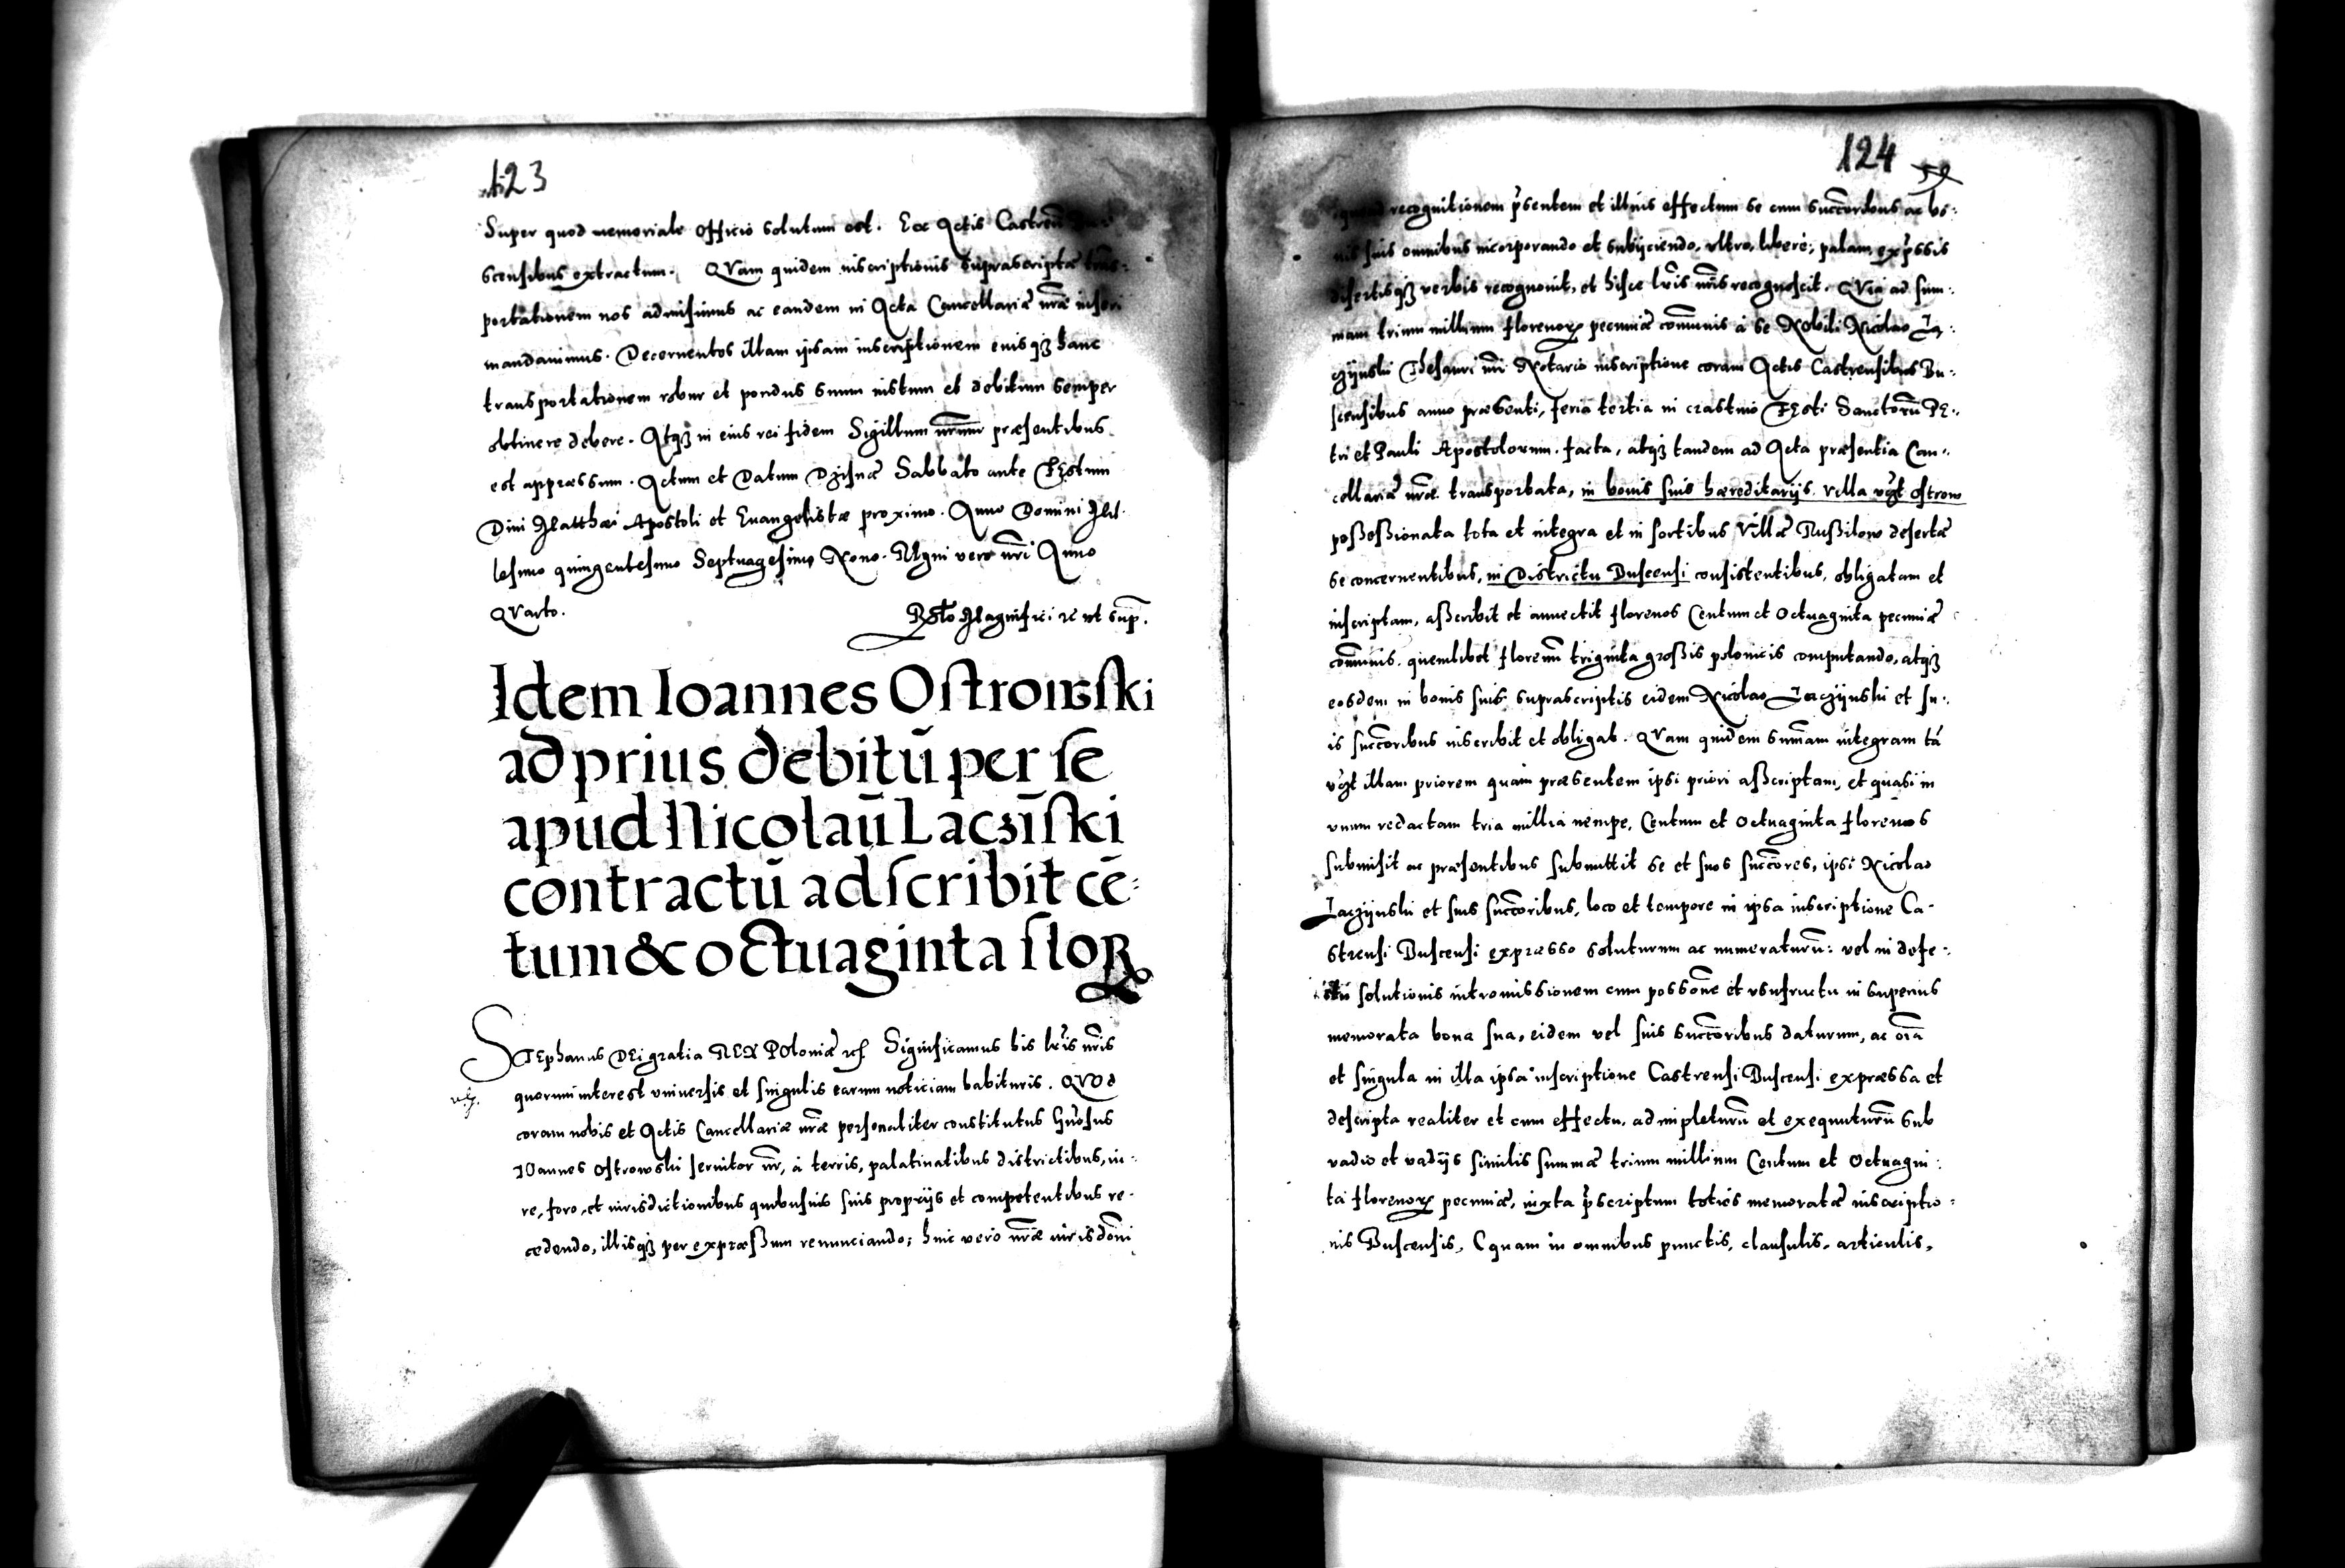 123
Super quod memoriale officio solutum est. Ex Actis Castren̄
scensibus extractum. QVam quidem inscriptionis suprascriptæ trās-
portationem nos admisimus ac eandem in Acta Cancellariæ nr̄æ inseri
mandauimus. Decernentes illam ipsam inscriptionem eiusq₃ hanc
transportationem robur et pondus suum iustum et debitum semper
obtinere debere. Atq₃ in eius rei fidem Sigillum nr̄um præsentibus
est appræssum. Actum et Datum Dzisnæ Sabbato ante FEstum
Diui Matthæi Apostoli et Euangelistæ proximo. Anno Domini Mil-
lesimo quingentesimo Septuagesimo Nono. REgni vero nr̄i Anno
QVarto.
Rl̄to Magnifici ꝛc ut sup̄.
Idem Ioannes Ostrowski
ad prius debitū per se
apud Nicolaū Lacziński
contractū adscribit cē-
tum & octuaginta floꝝ
STEphanus DEi gratia REX POloniæ ꝛcꝭ Significamus his lr̄is nr̄is
quorum interest vniuersis et singulis earum noticiam habituris. QVOd
coram nobis et Actis Cancellariæ nr̄æ personaliter constitutus Gn̄osus
IOannes Ostrowski seruitor nr̄, à terris, palatinatibus districtibus, iu-
re, foro, et iurisdictionibus quibusuis suis proprijs et competentibus re-
cedendo, illisq₃ per expræßum renunciando; huic vero nr̄æ iurisdōni
124
59
quoad recognitionem p̄sentem et illius effectum se cum succōribus ac bo-
nis suis omnibus incorporando et subijciendo, vltro, libere, palam exp̄ssis
disertisq₃ verbis recognouit, et hisce lr̄is nr̄is recognoscit. QVia ad sum-
mam trium millium florenoꝝ pecuniæ com̄unis à se Nobili Nicolao La-
czijnski Thesauri nr̄i Notario inscriptione coram Actis Castrensibus Bu-
scensibus anno præsenti, feria tertia in crastino FEsti Sanctorū PE-
tri et Pauli Apostolorum facta, atq₃ tandem ad Acta præsentia Can-
cellariæ nr̄æ transportata, in bonis suis hæreditarijs villa vꝫt Ostrow
poßeßionata tota et integra et in sortibus Villæ Rußilow desertæ
se concernentibus, in Districtu Buscensi consistentibus, obligatam et
inscriptam, aßcribit et annectit florenos Centum et Octuaginta pecuniæ
com̄unis. quemlibet florenū triginta großis polonicis computando, atq₃
eosdem in bonis suis suprascriptis eidem Nicolao Laczijnski et su-
is succōribus inscribit et obligat. QVam quidem sum̄am integram tā
vꝫt illam priorem quam præsentem ipsi priori aßcriptam, et quasi in
vnum redactam tria millia nempe, Centum et Octuaginta florenos
submisit ac præsentibus submittit se et suos succōres, ipsi Nicolao
Laczijnski et suis succōribus, loco et tempore in ipsa inscriptione Ca-
strensi Buscensi expræsso soluturum ac numeraturū: vel in defe-
ctu solutionis intromissionem cum possōne et vsufructu in superius
memorata bona sua, eidem vel suis succōribus daturum, ac oīa
et singula in illa ipsa inscriptione Castrensi Buscensi expræssa et
descripta realiter et cum effectu, adimpleturū et exequuturū sub
vadio et vadijs similis summæ trium millium Centum et Octuagin-
ta florenoꝝ pecuniæ, iuxta p̄scriptum toties memoratæ inscriptio-
nis Buscensis, Cquam in omnibus punctis, clausulis, articulis,